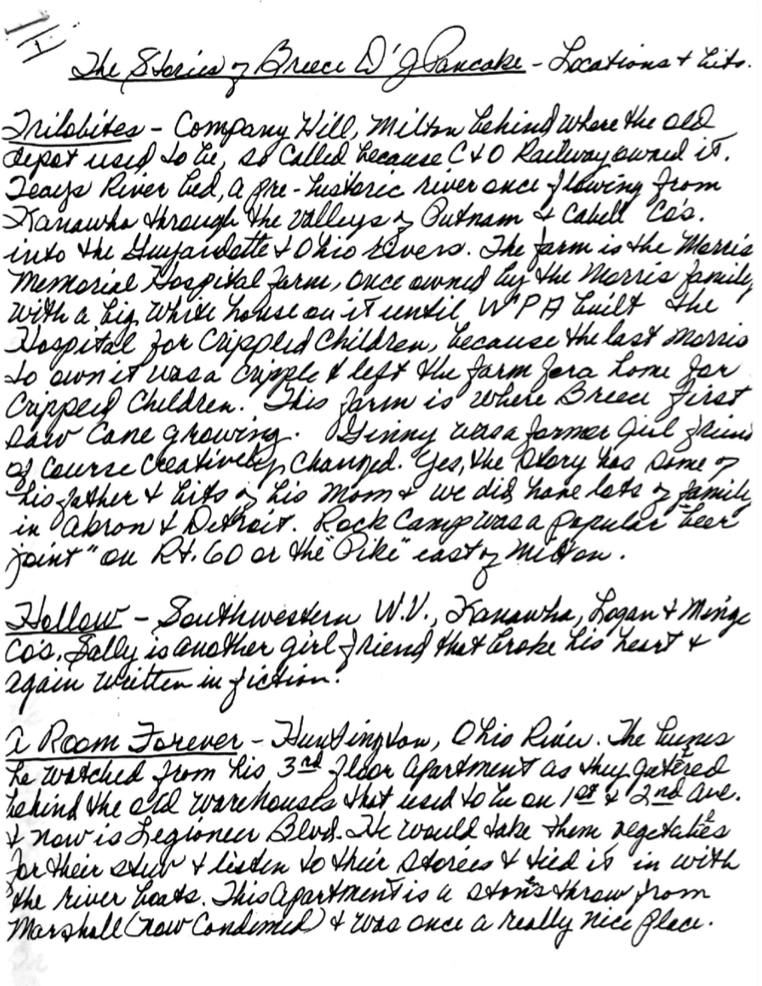 The Stories of Breece D'J Pancake - Locations & bits.
Trilobites - Company Hill, Milton behind where the old
depot used to be, so called because C & O Railway owned it.
Teays River bed, a pre-historic river once flowing from
Kanawha through the valleys of Putnam & Cabell Co's.
into the Guyandotte & Ohio Rivers. The farm is the Morris
Memorial Hospital farm, once owned by the Morris family
with a big white house on it until WPA built the
Hospital for Crippled Children, because the last Morris
to own it was a cripple & left the farm for a home for
Crippled Children. This farm is where Breece first
saw cane growing. Ginny was a former girl friend
of course creatively changed. Yes, the story has some of
his father & bits of his Mom & we did have lots of family
in Akron & Detroit. Rock Camp was a popular "beer
joint" on Rt. 60 or the "Pike" east of Milton.
Hollow - Southwestern W.V., Kanawha, Logan & Mingo
Co's. Sally is another girl friend that broke his heart &
again written in fiction.
A Room Forever - Huntington, Ohio River. The bums
he watched from his 3rd floor apartment as they gatered
behind the old warehouses that used to be on 1st & 2nd Ave.
& now is Legioneer Blvd. He would take them vegetables
for their stew & listen to their stories & tied it in with
the river boats. This apartment is a stone's throw from
Marshall (now Condemed) & was once a really nice place.